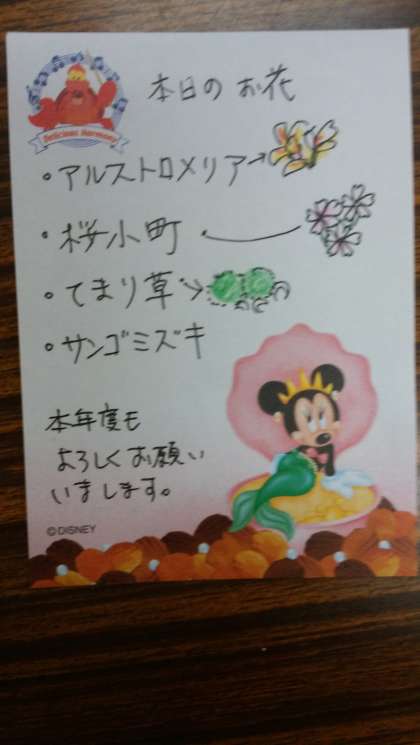 Delicious Harmony
本日のお花
・アルストロメリア→
・桜小町
・てまり草→
・サンゴミズキ
本年度も
よろしくお願い
いまします。
©DISNEY